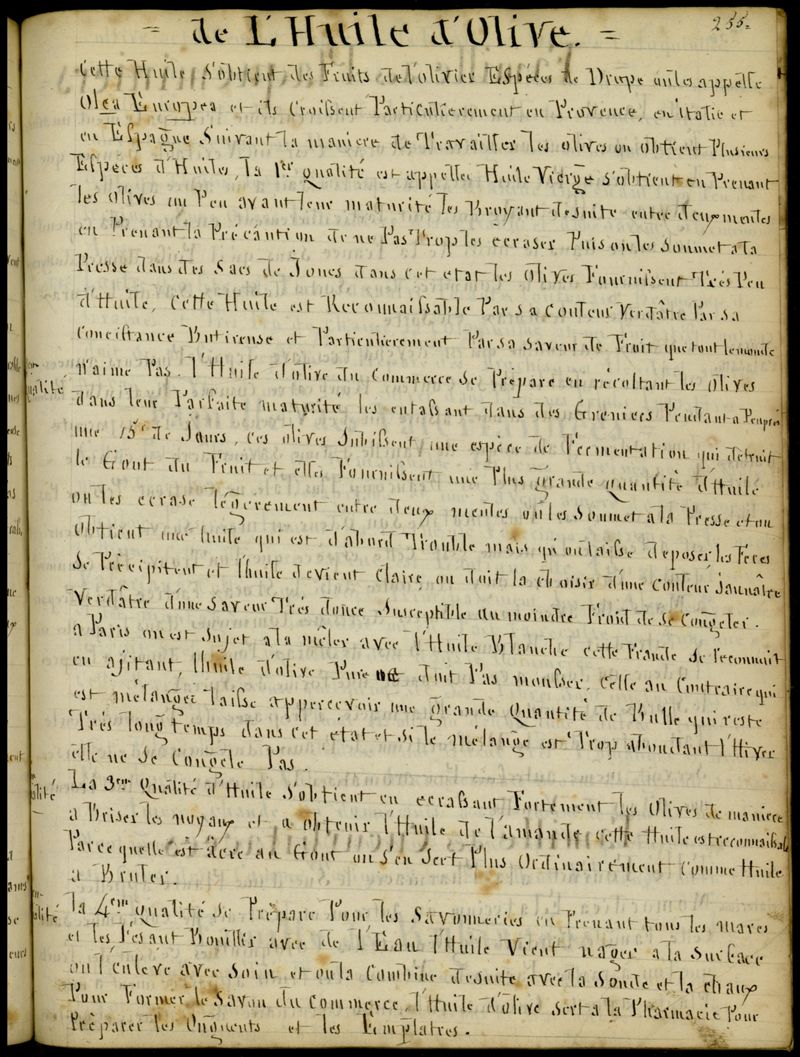 255.
= de L'Huile d'Olive. =
Cette Huile S'obtient des Fruits de l'olivier Espèces de Drupe on les appelle
Olea Europea et ils Croissent Particulierement en Provence, en italie et
en Espagne Suivant la maniere de Travailler les olives on obtient Plusieurs
Especes d'Huiles, la 1re qualité est appellee Huile Vierge s'obtient en Prenant
les olives un Peu avant leur maturité les Broyant desuite entre deux meules
en Prenant la Précaution de ne Pas Trop les écraser Puis on les Soumet a la
Presse dans des Sacs de Joncs dans cet etat les Olives Fournissent Très Peu
d'Huile, Cette Huile est Reconnaissable Par sa Couleur Verdâtre Par sa
Concistance Butireuse et Particulierement Par sa Saveur de Fruit que tout le monde
n'aime Pas. l'Huile d'olive du Commerce se Prepare en récoltant les Olives
dans leur Parfaite maturité les entassant dans des Greniers Pendant a Peu près
une 15e de Jours, ces olives Subissent une espèce de Fermentation qui detruit
le Gout du Fruit et elles Fournissent une Plus grande quantité d'Huile
on les ecrase légerement entre deux meules on les Soumet a la Presse et on
obtient une huile qui est d'abord Trouble mais qu'on laisse deposer les Feces
se Précipitent et l'huile devient Claire, on doit la choisir d'une Couleur Jaunâtre
Verdâtre d'une Saveur Très douce Susceptible au moindre Froid de se Congeler.
a Paris on est Sujet a la mêler avec l'Huile Blanche cette Fraude se reconnait
en ajitant, l'huile d'olive Pure ne doit Pas mousser, Celle au Contraire qui
est mélangee laisse appercevoir une grande Quantité de Bulle qui reste
Très longtemps dans cet état et si le mélange est Trop abondant l'Hiver
elle ne Se Congele Pas.
La 3me Qualité d'Huile S'obtient en ecrasant Fortement les Olives de maniere
a Briser les noyaux et a obtenir l'Huile de l'amande cette Huile est reconnaissable
Parce quelle est âcre au Gout on S'en Sert Plus Ordinairement Comme Huile
a Bruler.
la 4me qualité se Prépare Pour les Savonneries en Prenant tous les marcs
et les Fesant Bouillir avec de l'Eau l'Huile Vient nager a la Surface
on l'enleve avec Soin et on la Combine desuite avec la Soude et la chaux
Pour Former le Savon du Commerce. l'Huile d'olive Sert a la Pharmacie Pour
Préparer les Onguents et les Emplatres.